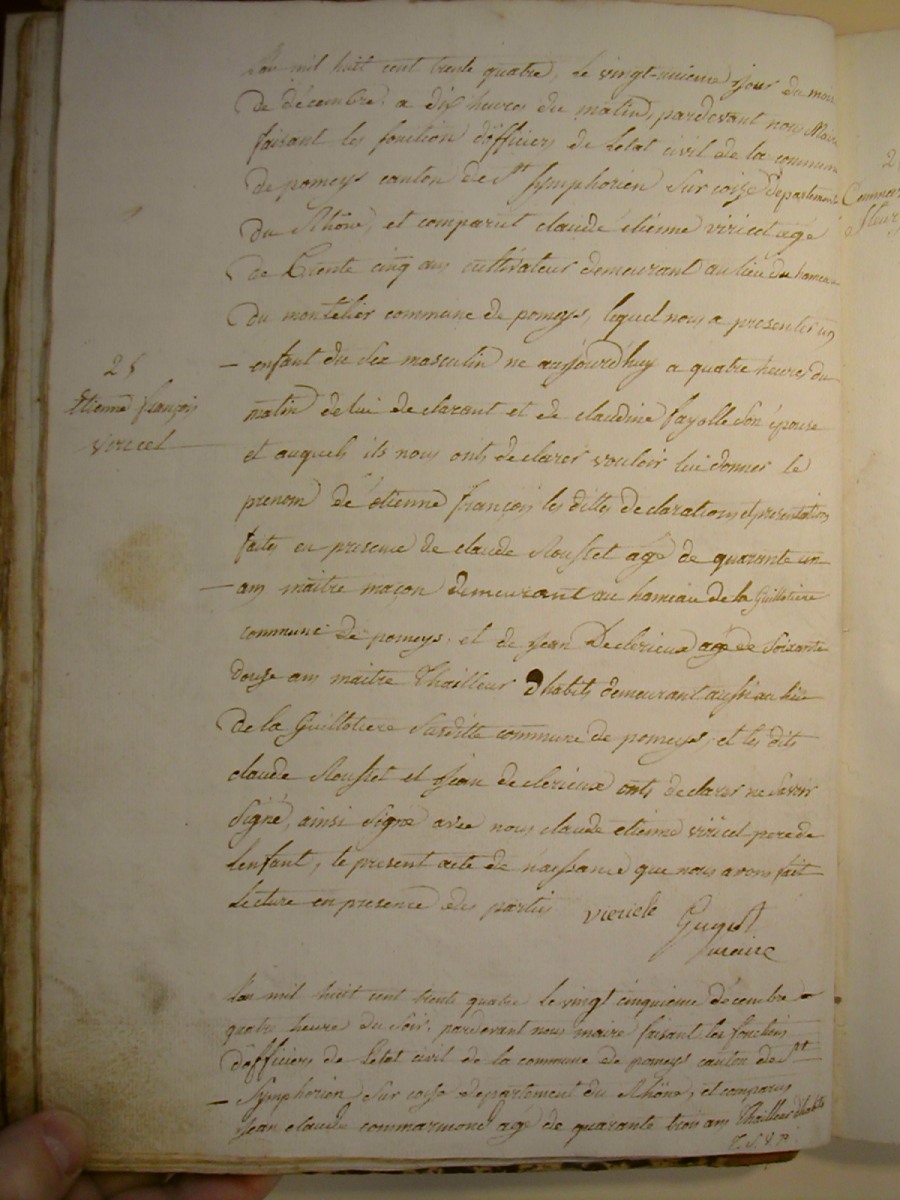 L'an mil huit cent trente quatre, le vingt-unieme jour du mois
de décembre a dix heures du matin, pardevant nous Maire
faisant les fonction d'officiers de l'etat civil de la commune
de pomeys canton de St Symphorien Sur coize Departement
du Rhône, et comparut claude étienne viricel agé
de trente cinq ans cultivateur demeurant au lieu du hameau
du montelier commune de pomeys, lequel nous a presenter un
25
Etienne françois
viricel
enfant du Sex masculin né aujourdhuy a quatre heures du
matin de lui declarant et de claudine fayolle Son épouse
et auquels ils nous onts declarer vouloir lui donner le
prenom de étienne françois les dittes declarations et presentation
faites en presence de claude Roustet agé de quarante un
ans maitre maçon demeurant au hameau de la Guillotiere
commune de pomeys. et de Jean Declerieux agé de Soixante
douze ans maitre Thailleur d'habits demeurant aussi au lieu
de la Guillotiere Susditte commune de pomeys, et les dits
claude Roustet et Jean declerieux onts declarer ne Savoir
Signé, ainsi Signé avec nous claude etienne viricel pere de
L'enfant, le present acte de naissance que nous avons fait
Lecture en presence des partis viericle Guyot
maire
L'an mil huit cent trente quatre le vingt cinquieme décembre a
quatre heure du Soir, pardevant nous maire faisant les fonctions
d'officiers de L'etat civil de la commune de pomeys canton de St
Symphorien Sur coize departement du Rhône, et comparus
Jean claude commarmond agé de quarante trois ans Thailleur d'habits
T. S. V. P.
2
Commar
fleur